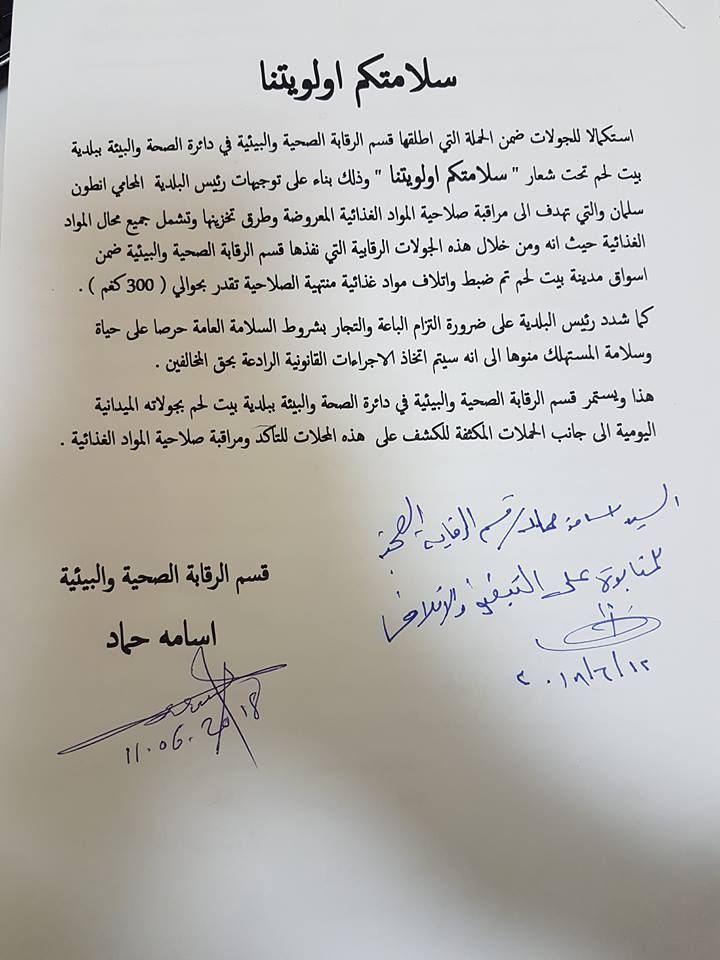 سلامتكم اولويتنا
استكمالا للجولات ضمن الحملة التي اطلقها قسم الرقابة الصحية والبيئية في دائرة الصحة والبيئة ببلدية
بيت لحم تحت شعار " سلامتكم اولويتنا " وذلك بناء على توجيهات رئيس البلدية المحامي انطون
سلمان والتي تهدف الى مراقبة صلاحية المواد الغذائية المعروضة وطرق تخزينها وتشمل جميع محال المواد
الغذائية حيث انه ومن خلال هذه الجولات الرقابية التي نفذها قسم الرقابة الصحية والبيئية ضمن
اسواق مدينة بيت لحم تم ضبط واتلاف مواد غذائية منتهية الصلاحية تقدر بحوالي ( 300 كغم ) .
كما شدد رئيس البلدية على ضرورة التزام الباعة والتجار بشروط السلامة العامة حرصا على حياة
وسلامة المستهلك منوها الى انه سيتم اتخاذ الاجراءات القانونية الرادعة بحق المخالفين .
هذا ويستمر قسم الرقابة الصحية والبيئية في دائرة الصحة والبيئة ببلدية بيت لحم بجولاته الميدانية
اليومية الى جانب الحملات المكثفة للكشف على هذه المحلات للتأكد ومراقبة صلاحية المواد الغذائية .
السيد اسامة حماد/ قسم الرقابة الصحية
على التفتيش والاتلاف
٢٠١٨/٦/١٢
قسم الرقابة الصحية والبيئية
اسامه حماد
11.06.2018